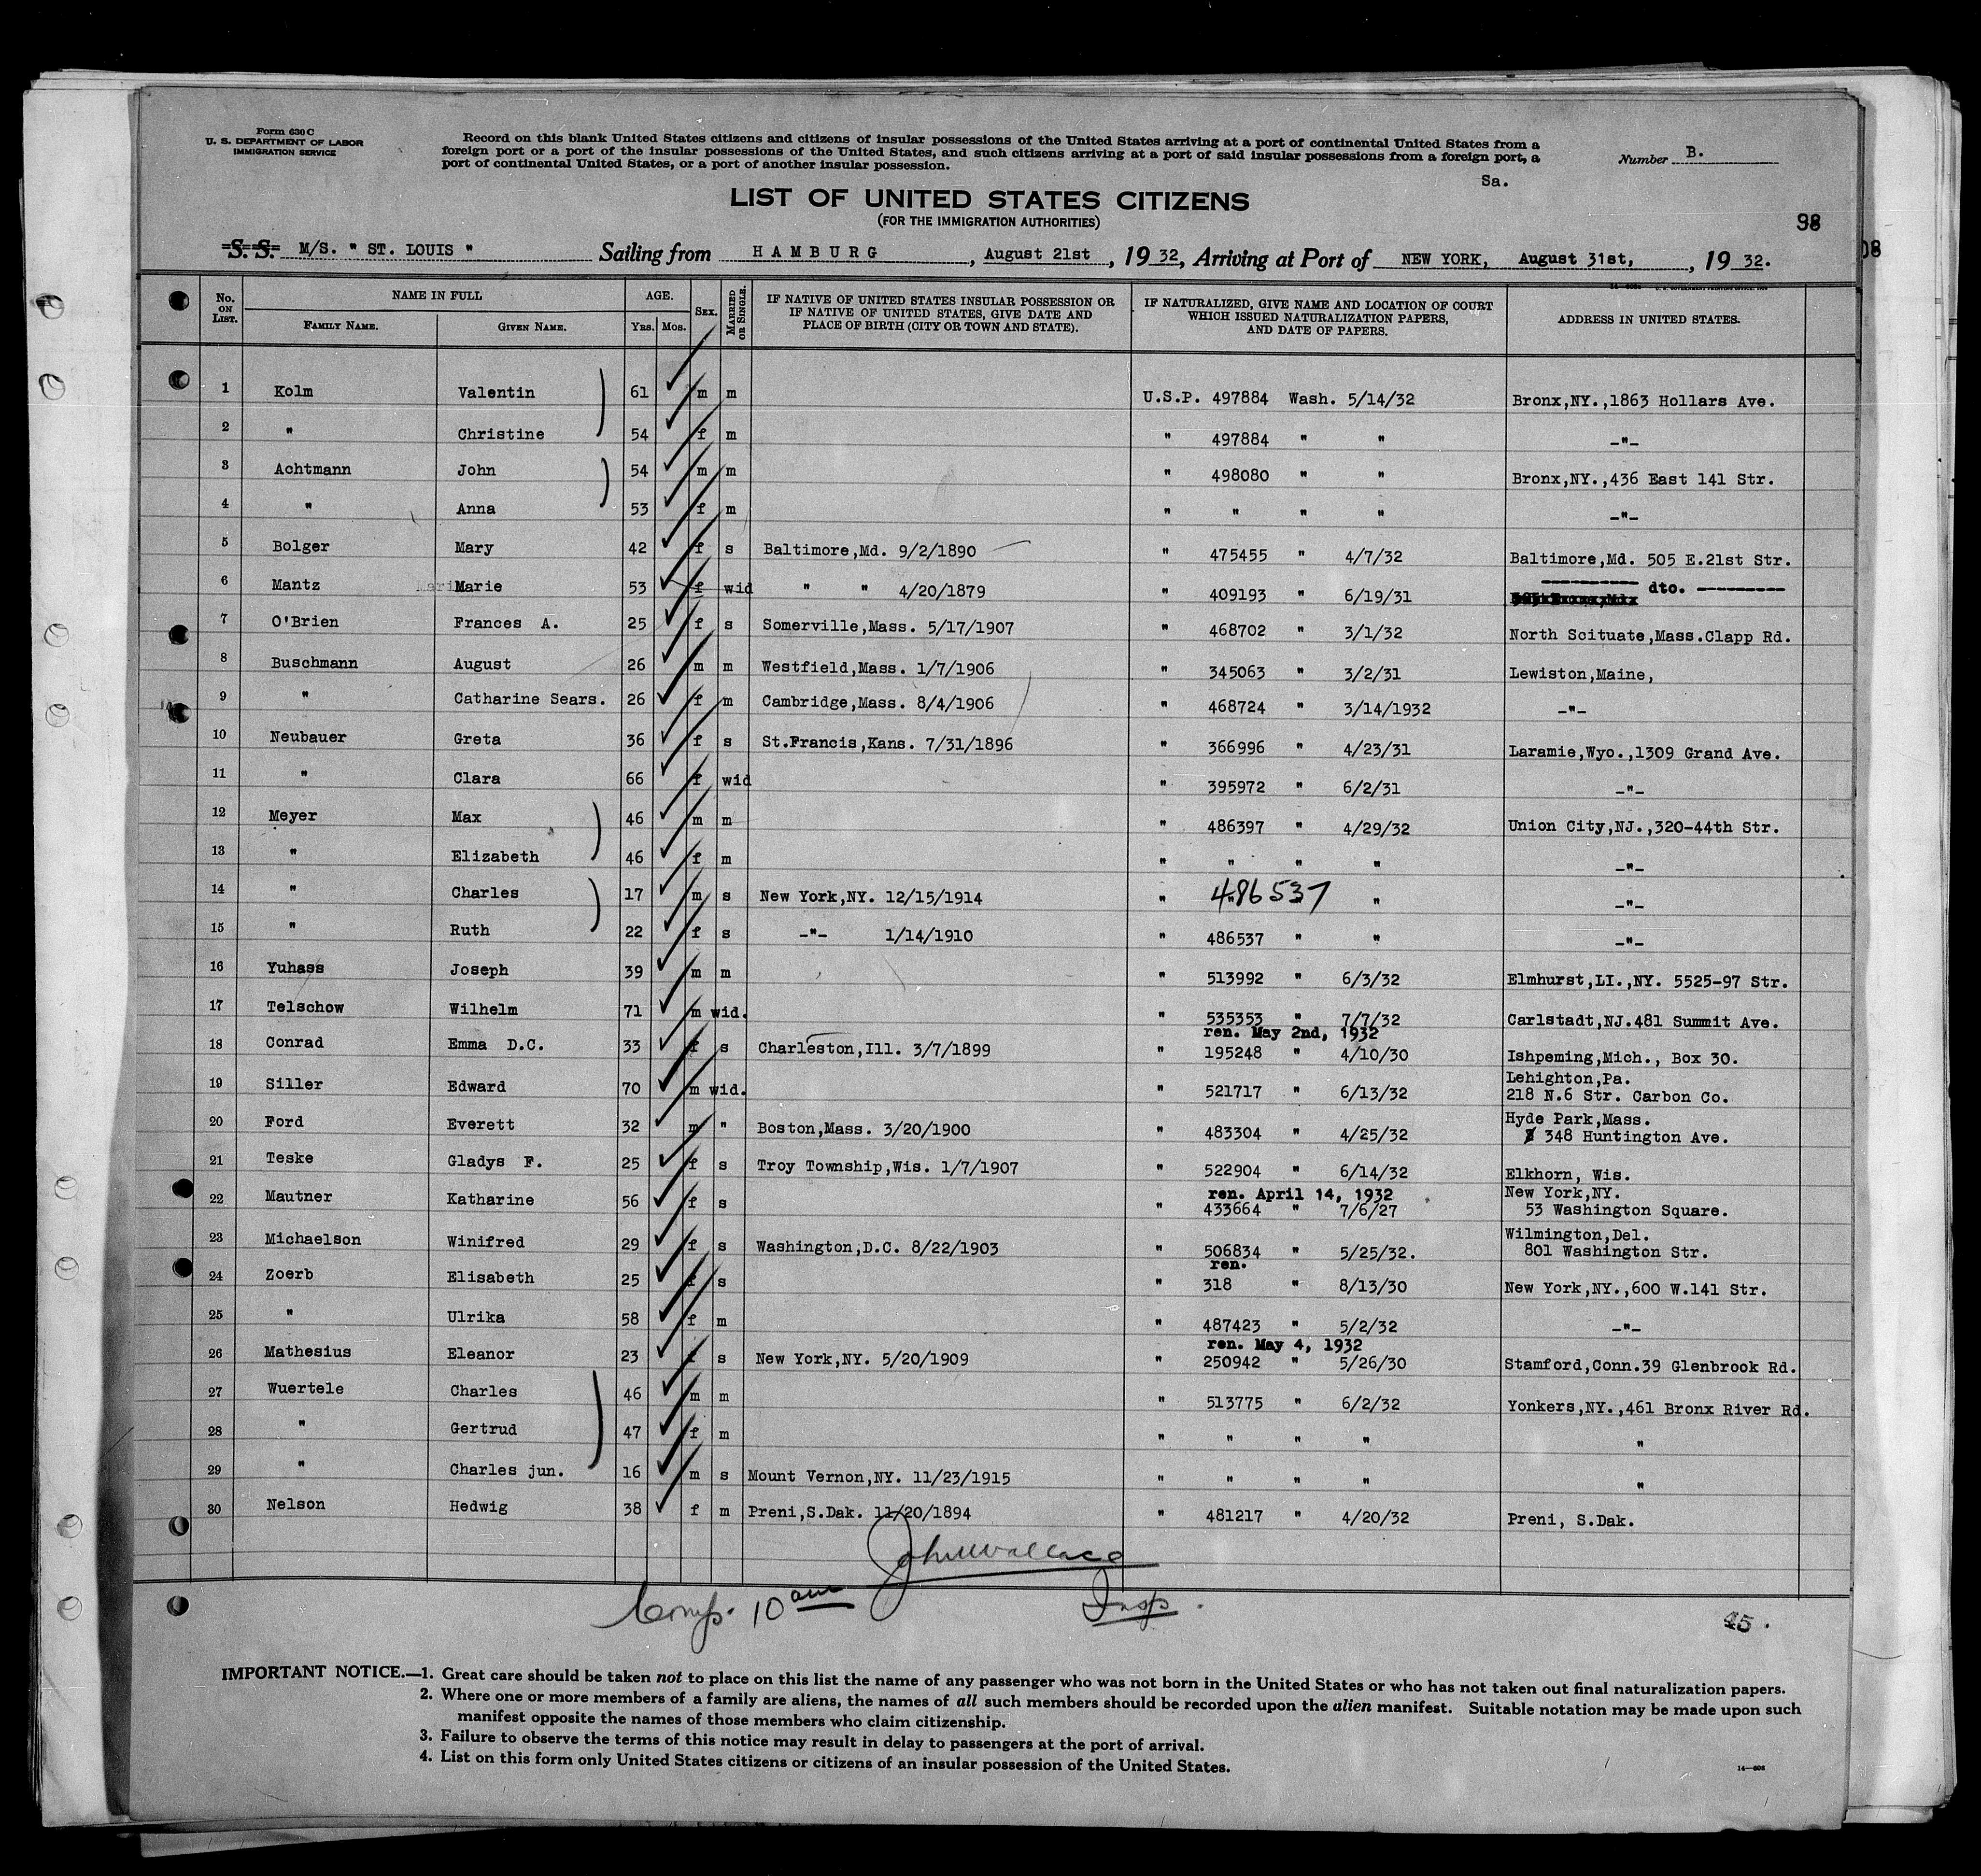 Form 630 C
U. S. DEPARTMENT OF LABOR
IMMIGRATION SERVICE
Record on this blank United States citizens and citizens of insular possessions of the United States arriving at a port of continental United States from a
foreign port or a port of the insular possessions of the United States, and such citizens arriving at a port of said insular possessions from a foreign port, a
port of continental United States, or a port of another insular possession.
Number B.
Sa.
LIST OF UNITED STATES CITIZENS
(FOR THE IMMIGRATION AUTHORITIES)
98
S. S. M/S. " ST. LOUIS " Sailing from HAMBURG, August 21st, 19 32, Arriving at Port of NEW YORK, August 31st, , 19 32.
No. ON LIST. NAME IN FULL FAMILY NAME. GIVEN NAME. AGE. Yrs. Mos. Sex. MARRIED OR SINGLE. IF NATIVE OF UNITED STATES INSULAR POSSESSION OR IF NATIVE OF UNITED STATES, GIVE DATE AND PLACE OF BIRTH (CITY OR TOWN AND STATE). IF NATURALIZED, GIVE NAME AND LOCATION OF COURT WHICH ISSUED NATURALIZATION PAPERS, AND DATE OF PAPERS. ADDRESS IN UNITED STATES.
1 Kolm Valentin 61 m m U.S.P. 497884 Wash. 5/14/32 Bronx,NY.,1863 Hollars Ave.
2 " Christine 54 f m " 497884 " " -"-
3 Achtmann John 54 m m " 498080 " " Bronx,NY.,436 East 141 Str.
4 " Anna 53 f m " " " " -"-
5 Bolger Mary 42 f s Baltimore,Md. 9/2/1890 " 475455 " 4/7/32 Baltimore,Md. 505 E.21st Str.
6 Mantz Marie 53 f wid " " 4/20/1879 " 409193 " 6/19/31 dto.
7 O'Brien Frances A. 25 f s Somerville,Mass. 5/17/1907 " 468702 " 3/1/32 North Scituate,Mass.Clapp Rd.
8 Buschmann August 26 m m Westfield,Mass. 1/7/1906 " 345063 " 3/2/31 Lewiston,Maine,
9 " Catharine Sears. 26 f m Cambridge,Mass. 8/4/1906 " 468724 " 3/14/1932 -"-
10 Neubauer Greta 36 f s St.Francis,Kans. 7/31/1896 " 366996 " 4/23/31 Laramie,Wyo.,1309 Grand Ave.
11 " Clara 66 f wid " 395972 " 6/2/31 -"-
12 Meyer Max 46 m m " 486397 " 4/29/32 Union City,NJ.,320-44th Str.
13 " Elizabeth 46 f m " " " " -"-
14 " Charles 17 m s New York,NY. 12/15/1914 " 486537 " -"-
15 " Ruth 22 f s -"- 1/14/1910 " 486537 " " -"-
16 Yuhass Joseph 39 m m " 513992 " 6/3/32 Elmhurst,LI.,NY. 5525-97 Str.
17 Telschow Wilhelm 71 m wid. " 535353 " 7/7/32 Carlstadt,NJ.481 Summit Ave.
ren. May 2nd, 1932
18 Conrad Emma D.C. 33 f s Charleston,Ill. 3/7/1899 " 195248 " 4/10/30 Ishpeming,Mich., Box 30.
Lehighton,Pa.
19 Siller Edward 70 m wid. " 521717 " 6/13/32 218 N.6 Str. Carbon Co.
Hyde Park,Mass.
20 Ford Everett 32 m " Boston,Mass. 3/20/1900 " 483304 " 4/25/32 348 Huntington Ave.
21 Teske Gladys F. 25 f s Troy Township,Wis. 1/7/1907 " 522904 " 6/14/32 Elkhorn, Wis.
ren. April 14, 1932 New York,NY.
22 Mautner Katharine 56 f s " 433664 " 7/6/27 53 Washington Square.
Wilmington,Del.
23 Michaelson Winifred 29 f s Washington,D.C. 8/22/1903 " 506834 " 5/25/32. 801 Washington Str.
ren.
24 Zoerb Elisabeth 25 f s " 318 " 8/13/30 New York,NY.,600 W.141 Str.
25 " Ulrika 58 f m " 487423 " 5/2/32 -"-
ren. May 4, 1932
26 Mathesius Eleanor 23 f s New York,NY. 5/20/1909 " 250942 " 5/26/30 Stamford,Conn.39 Glenbrook Rd.
27 Wuertele Charles 46 m m " 513775 " 6/2/32 Yonkers,NY.,461 Bronx River Rd.
28 " Gertrud 47 f m " " " " "
29 " Charles jun. 16 m s Mount Vernon,NY. 11/23/1915 " " " " "
30 Nelson Hedwig 38 f m Preni,S.Dak. 11/20/1894 " 481217 " 4/20/32 Preni, S.Dak.
John Wallace
Comp. 10 am Insp.
45.
IMPORTANT NOTICE.—1. Great care should be taken not to place on this list the name of any passenger who was not born in the United States or who has not taken out final naturalization papers.
2. Where one or more members of a family are aliens, the names of all such members should be recorded upon the alien manifest. Suitable notation may be made upon such
manifest opposite the names of those members who claim citizenship.
3. Failure to observe the terms of this notice may result in delay to passengers at the port of arrival.
4. List on this form only United States citizens or citizens of an insular possession of the United States.
14—608